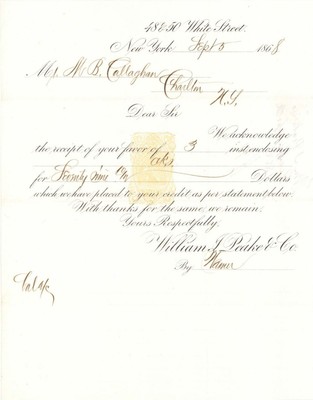 48 & 50 White Street.
New York Sept 5 1868
M B. Callaghan
Charlton
N.Y.
Dear Sir
We acknowledge
the receipt of your favor of 3 inst. enclosing
for Seventy nine Dollars
which we have placed to your credit as per statement below
With thanks for the same, we remain
Yours Respectfully,
William J. Peake & Co.
By